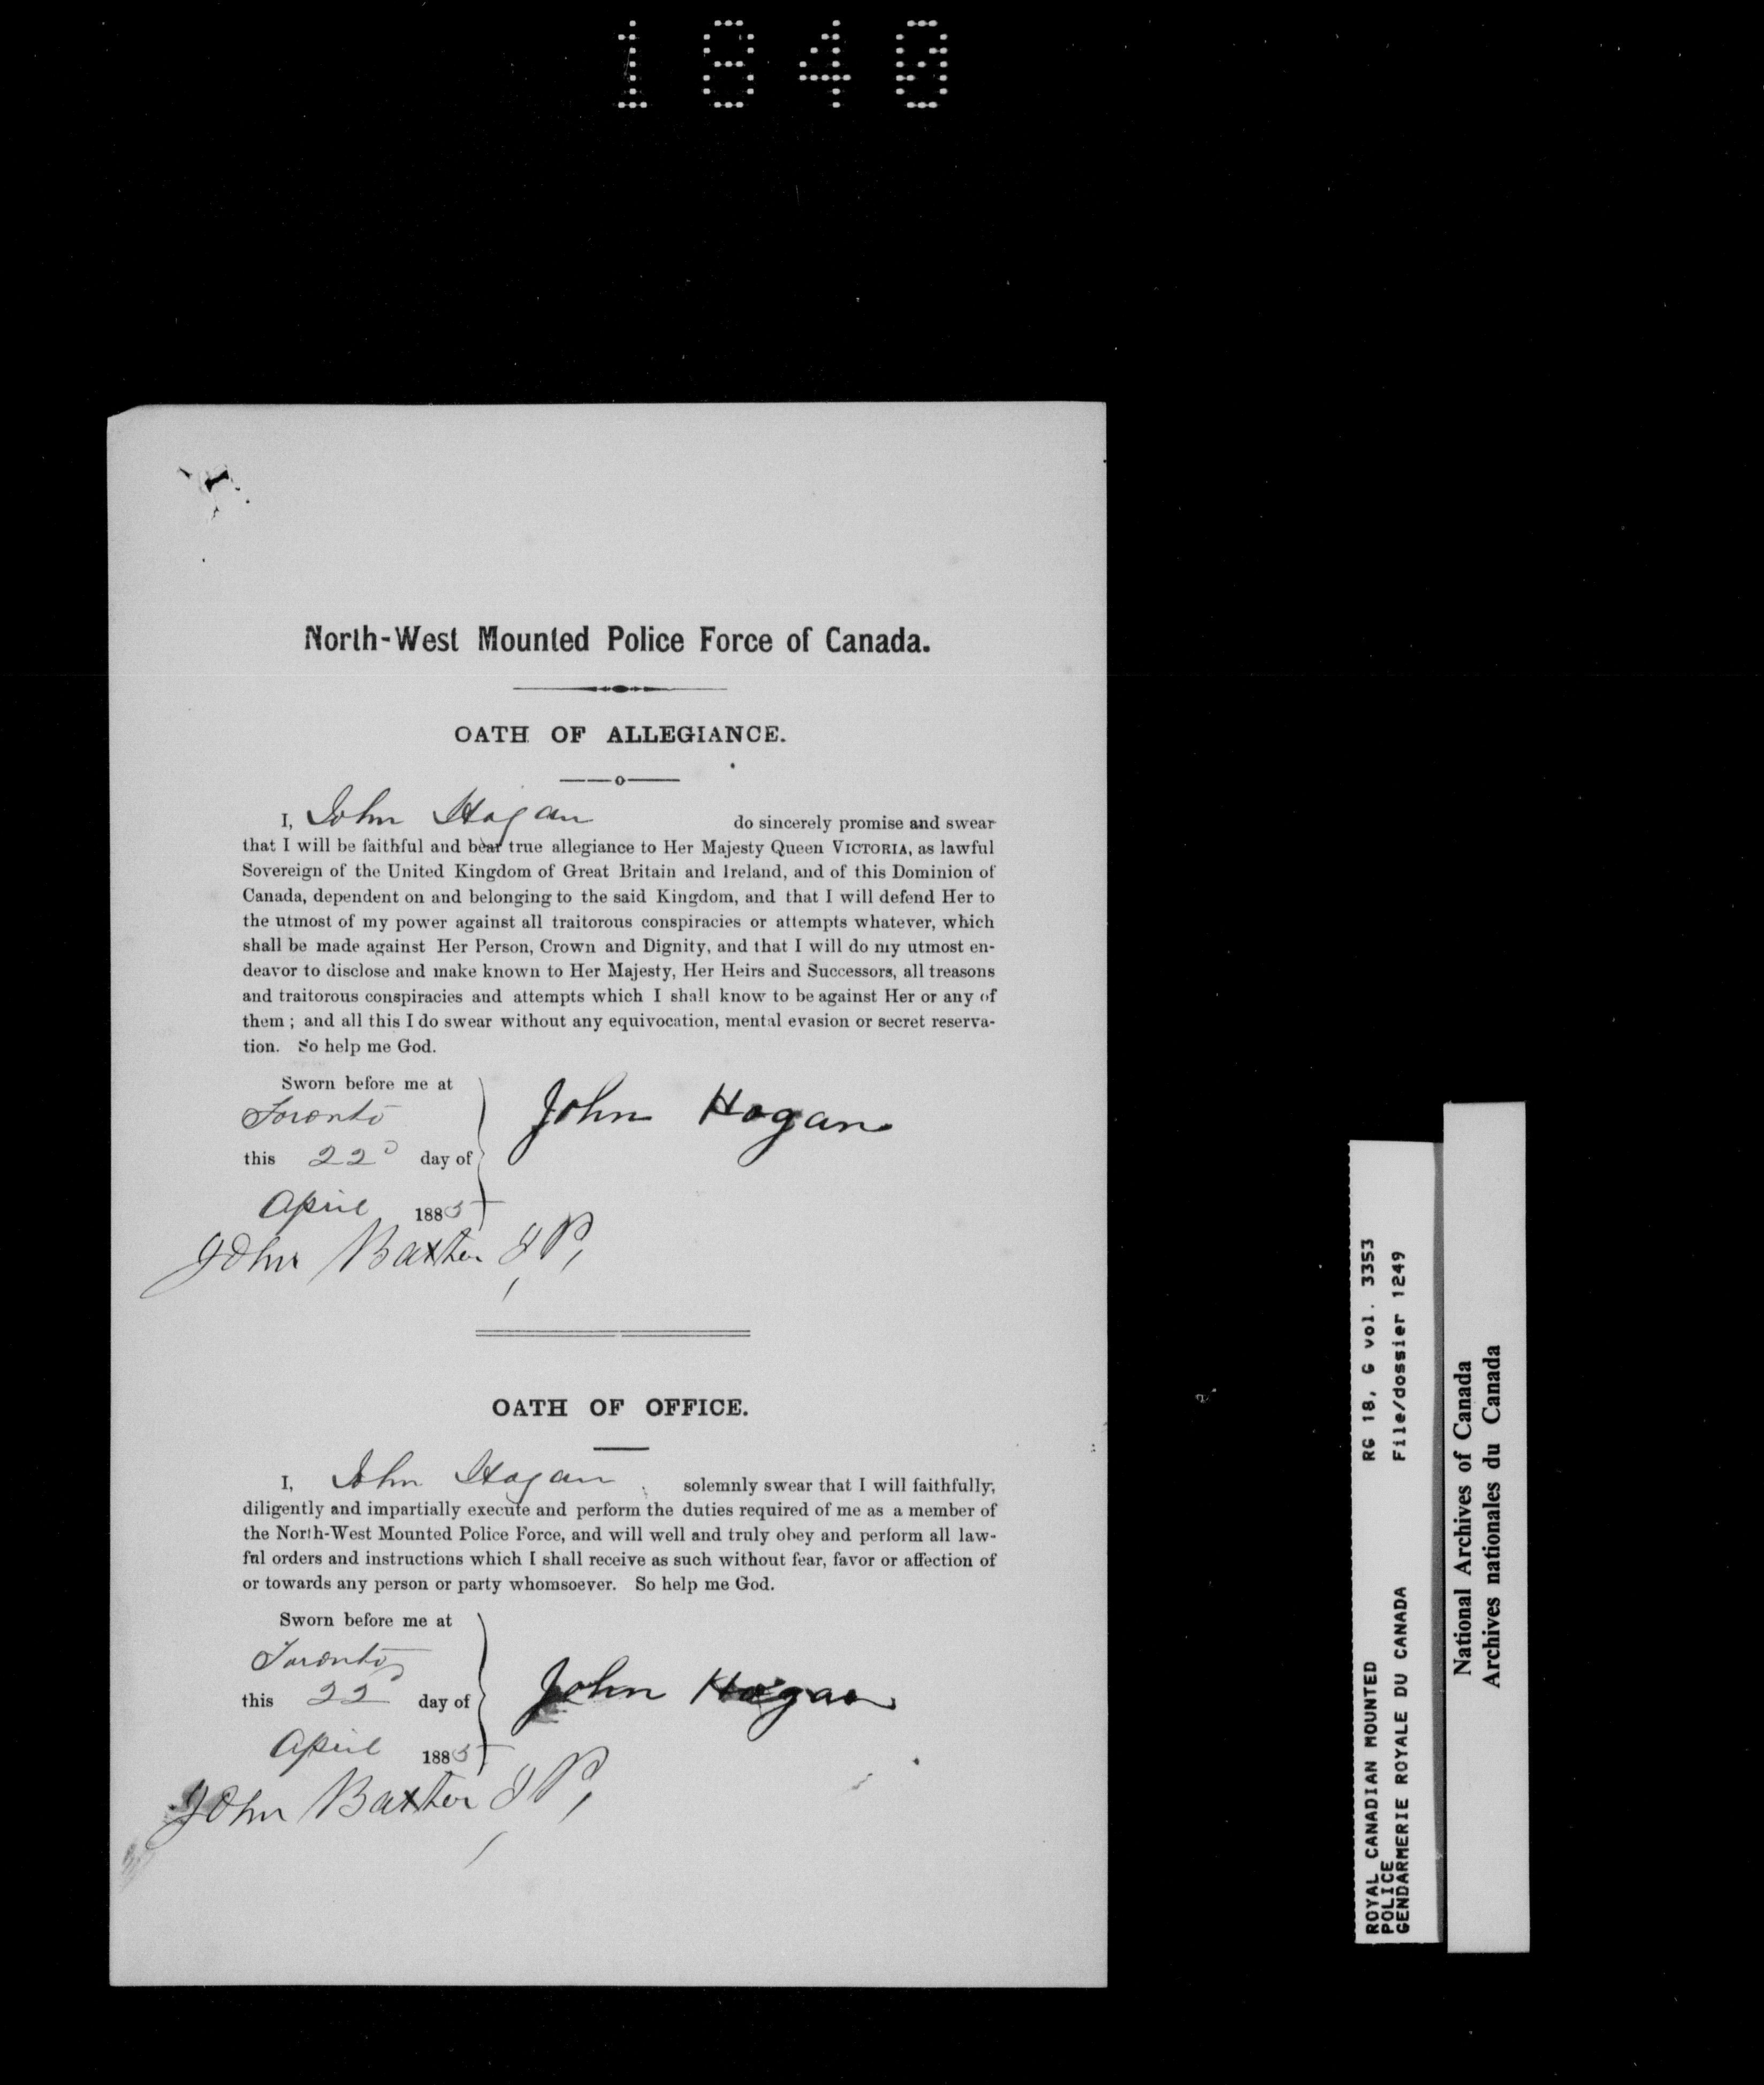 1840
North-West Mounted Police Force of Canada.
OATH OF ALLEGIANCE.
I, John Hogan do sincerely promise and swear
that I will be faithful and bear true allegiance to Her Majesty Queen VICTORIA, as lawful
Sovereign of the United Kingdom of Great Britain and Ireland, and of this Dominion of
Canada, dependent on and belonging to the said Kingdom, and that I will defend Her to
the utmost of my power against all traitorous conspiracies or attempts whatever, which
shall be made against Her Person, Crown and Dignity, and that I will do my utmost en-
deavor to disclose and make known to Her Majesty, Her Heirs and Successors, all treasons
and traitorous conspiracies and attempts which I shall know to be against Her or any of
them ; and all this I do swear without any equivocation, mental evasion or secret reserva-
tion. So help me God.
Sworn before me at
Toronto
this 22d day of
April 1885
John Hogan
John Baxter J P,
OATH OF OFFICE.
I, John Hogan solemnly swear that I will faithfully,
diligently and impartially execute and perform the duties required of me as a member of
the North-West Mounted Police Force, and will well and truly obey and perform all law-
ful orders and instructions which I shall receive as such without fear, favor or affection of
or towards any person or party whomsoever. So help me God.
Sworn before me at
Toronto
this 22d day of
April 1885
John Hogan
John Baxter J P,
ROYAL CANADIAN MOUNTED RG 18, G vol. 3353
POLICE
GENDARMERIE ROYALE DU CANADA File/dossier 1249
National Archives of Canada
Archives nationales du Canada